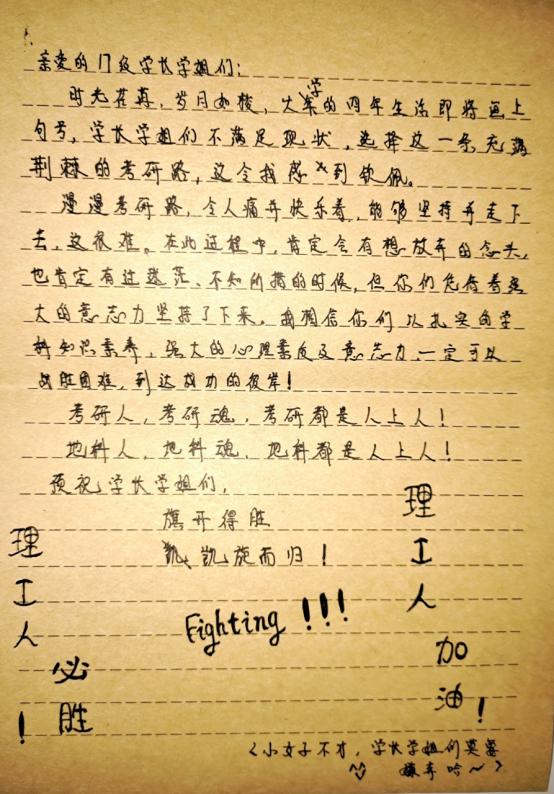 亲爱的门级学长学姐们:
时光荏苒,岁月如梭,大学的四年生活即将画上
句号,学长学姐们不满足现状,选择这一条充满
荆棘的考研路,这令我感到钦佩。
漫漫考研路,令人痛并快乐着,能够坚持并走下
去,这很难。在此过程中,肯定会有想放弃的念头,
也肯定有过迷茫、不知所措的时候,但你们凭借着强
大的意志力坚持了下来。我相信你们以扎实的学
科知识素养,强大的心理素质及意志力,一定可以
战胜困难,到达成功的彼岸!
考研人,考研魂,考研都是人上人!
地科人,地科魂,地科都是人上人!
预祝学长学姐们,
旗开得胜
凯凯旋而归!
Fighting !!!
理工人
必胜!
理工人
加油!
<小女子不才,学长学姐们莫要
嫌弃哈~>